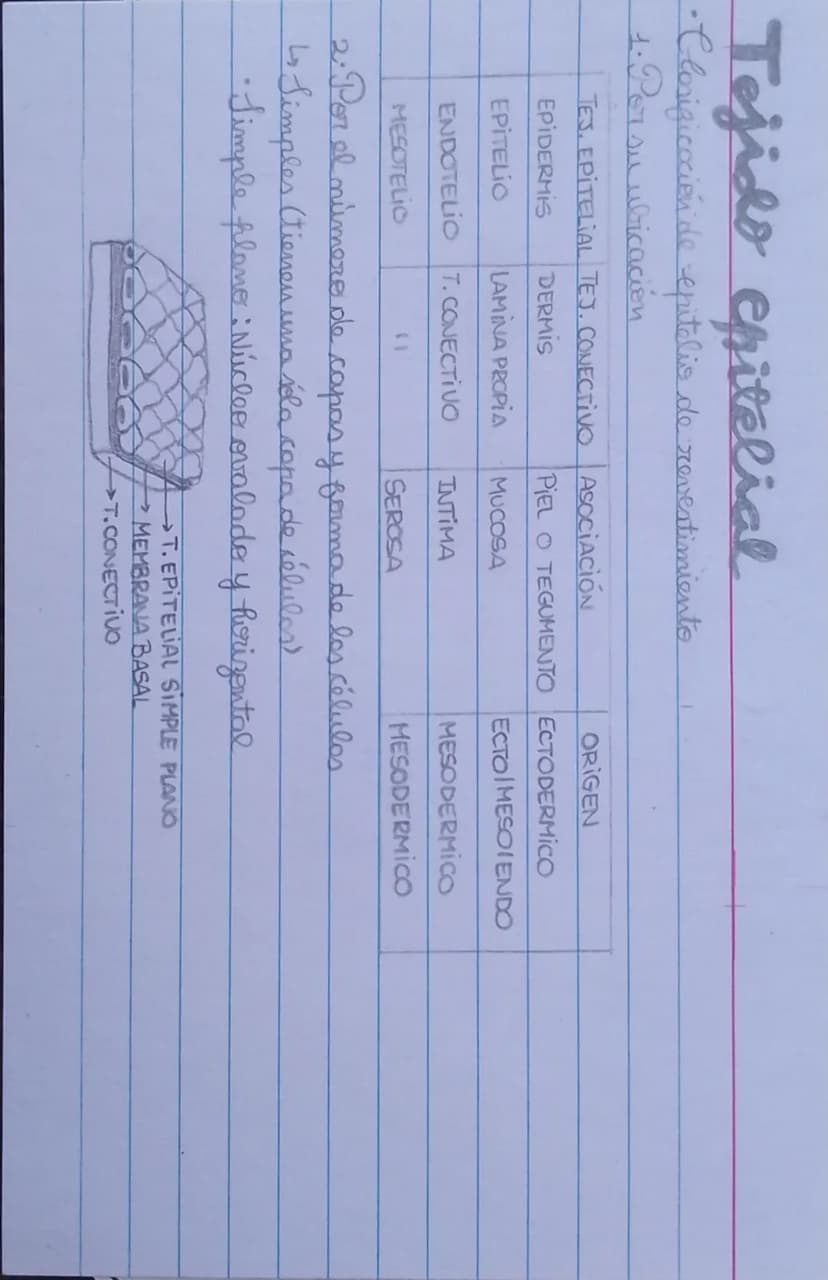 Tejido epitelial
· Clasificación de epitelio de revestimiento
1. Por su ubicación
TEJ. EPITELIAL TEJ. CONECTIVO ASOCIACIÓN ORIGEN
EPIDERMIS DERMIS PIEL O TEGUMENTO ECTODERMICO
EPITELIO LAMINA PROPIA MUCOSA ECTO/MESO/ENDO
ENDOTELIO T. CONECTIVO INTIMA MESODERMICO
MESOTELIO " SEROSA MESODERMICO
2. Por el número de capas y forma de las células
↳ Simples (tienen una sóla capa de células)
· Simple plano: Núcleo ovalado y horizontal
→ T. EPITELIAL SIMPLE PLANO
→ MEMBRANA BASAL
→ T. CONECTIVO